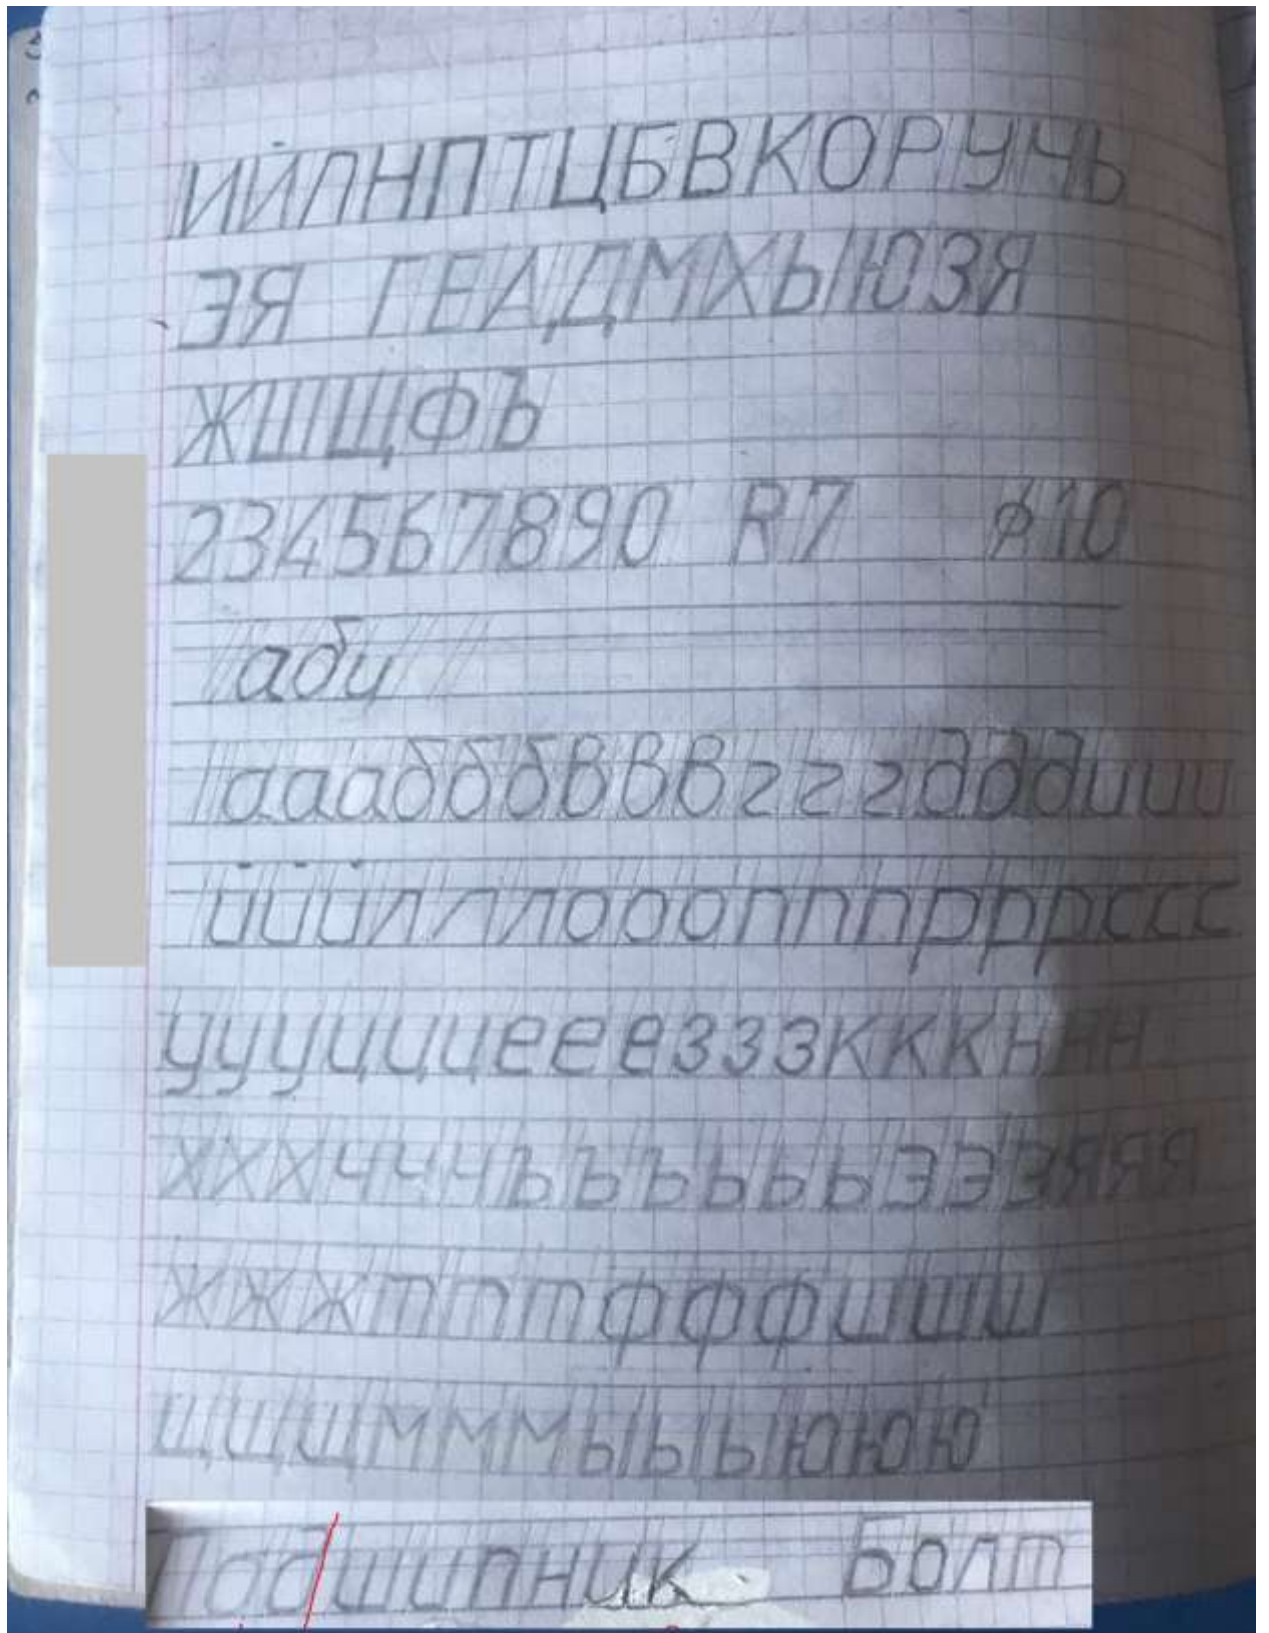 ИЙЛНПТЦБВКОРУЧЬ
ЭЯ ГЕАДМХЫЮЗЯ
ЖШЩФЪ
234567890 R7 ⌀10
абц
ааабббвввгггдддиии
йййлллооопппрррссс
уууцццеееззззкккннн
хххчччъъъьььэээяяя
жжжтттфффшшш
щщщмммыыыююю
Подшипник Болт